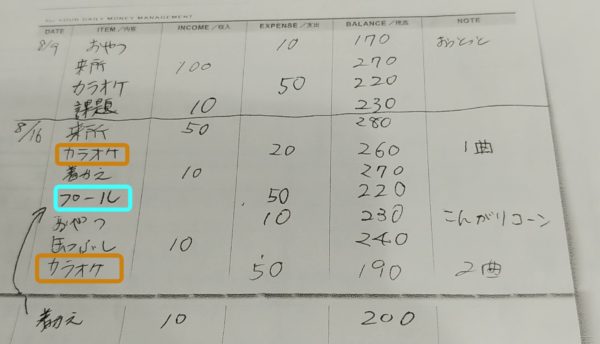 for YOUR DAILY MONEY MANAGEMENT
DATE ITEM／内容 INCOME／収入 EXPENSE／支出 BALANCE／残高 NOTE
8/9 おやつ 10 170 おっとっと
来所 100 270
カラオケ 50 220
課題 10 230
8/16 来所 50 280
カラオケ 20 260 1曲
着がえ 10 270
プール 50 220
おやつ 10 230 こんがりコーン
缶つぶし 10 240
カラオケ 50 190 2曲
着がえ 10 200